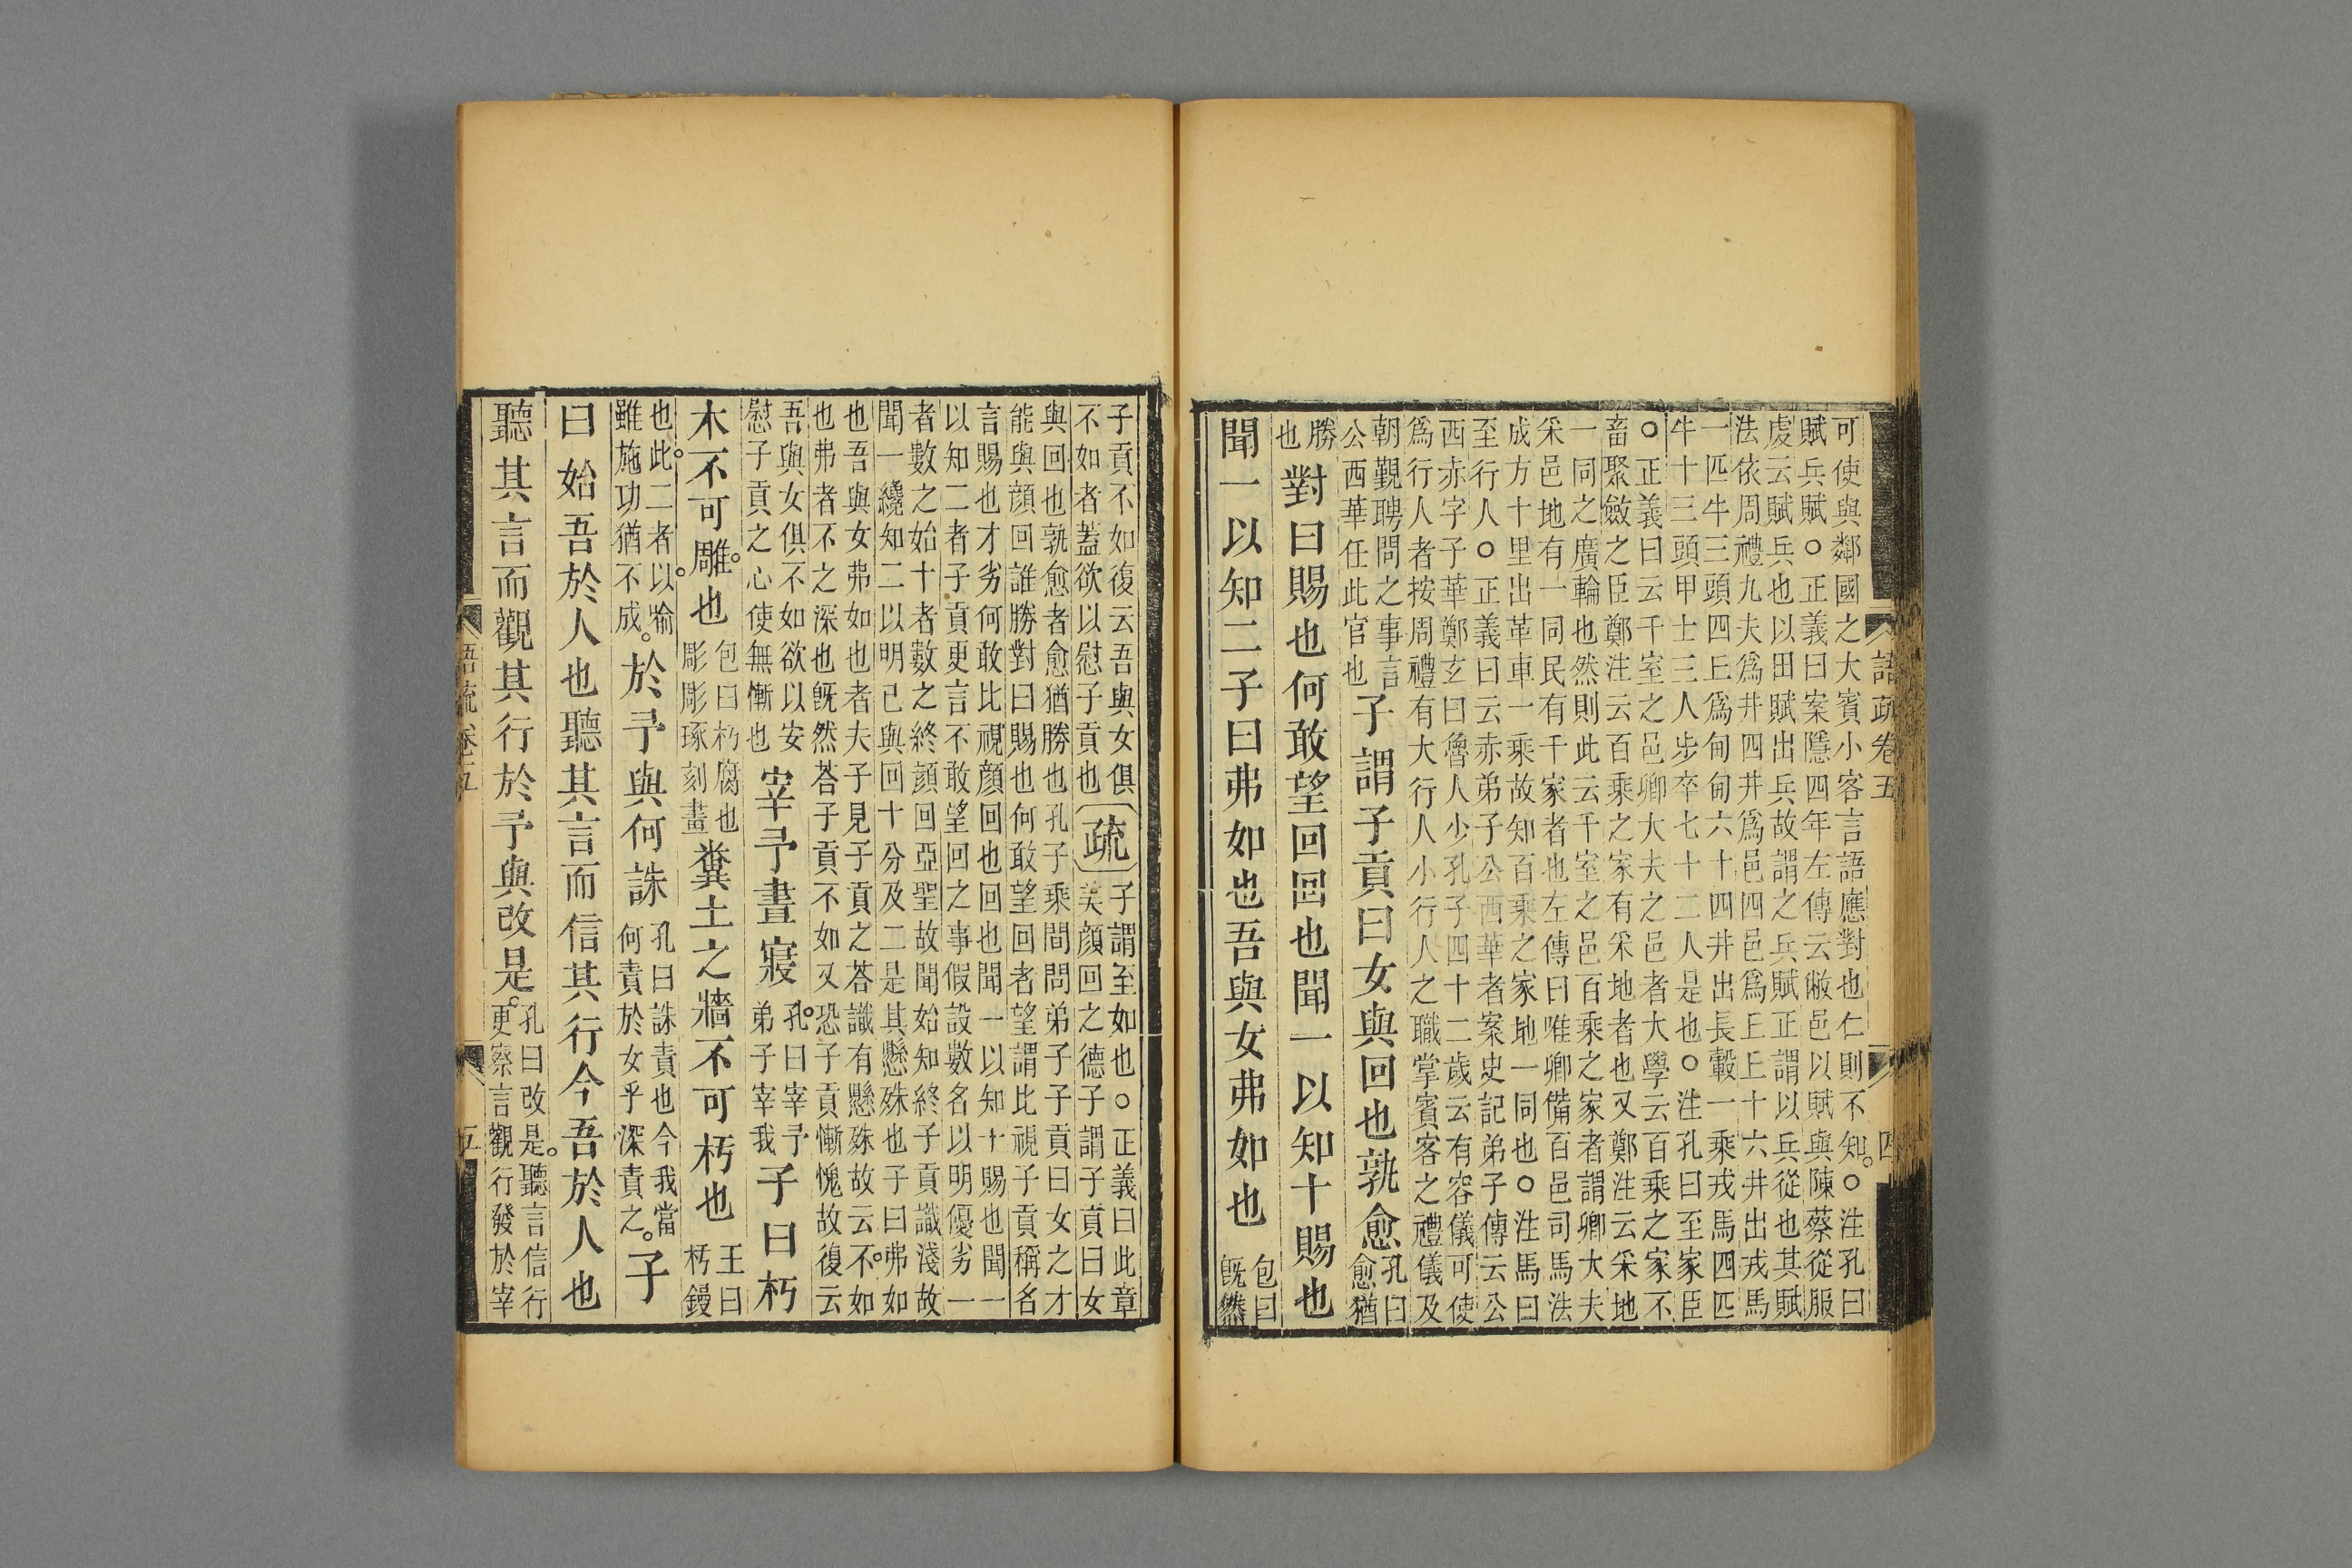 可使與鄰國之大賓小客言語應對也仁則不知○注孔曰
賦兵賦○正義曰案隱四年左傳云敝邑以賦與陳蔡從服
虔云賦兵也以田賦出兵故謂之兵賦正謂以兵從也其賦
法依周禮九夫爲井四井爲邑四邑爲丘丘十六井出戎馬
一匹牛三頭四丘爲甸甸六十四井出長轂一乘戎馬四匹
牛十三頭甲士三人步卒七十二人是也○注孔曰至家臣
○正義曰云千室之邑卿大夫之邑者大學云百乘之家不
畜聚斂之臣鄭注云百乘之家有采地者也又鄭注云采地
一同之廣輪也然則此云千室之邑百乘之家者謂卿大夫
采邑地有一同民有千家者也左傳曰唯卿備百邑司馬法
成方十里出革車一乘故知百乘之家地一同也○注馬曰
至行人○正義曰云赤弟子公西華者案史記弟子傳云公
西赤字子華鄭玄曰魯人少孔子四十二歲云有容儀可使
爲行人者按周禮有大行人小行人之職掌賓客之禮儀及
朝覲聘問之事言
公西華任此官也
子謂子貢曰女與回也孰愈
孔曰
愈猶
勝
也
對曰賜也何敢望回回也聞一以知十賜也
聞一以知二子曰弗如也吾與女弗如也
包曰
旣然
語疏卷五
四
子貢不如復云吾與女俱
不如者蓋欲以慰子貢也
疏
子謂至如也○正義曰此章
美顏回之德子謂子貢曰女
與回也孰愈者愈猶勝也孔子乘間問弟子子貢曰女之才
能與顏回誰勝對曰賜也何敢望回者望謂比視子貢稱名
言賜也才劣何敢比視顏回也回也聞一以知十賜也聞一
以知二者子貢更言不敢望回之事假設數名以明優劣一
者數之始十者數之終顏回亞聖故聞始知終子貢識淺故
聞一纔知二以明己與回十分及二是其懸殊也子曰弗如
也吾與女弗如也者夫子見子貢之荅識有懸殊故云不如
也弗者不之深也旣然荅子貢不如又恐子貢慚愧故復云
吾與女俱不如欲以安
慰子貢之心使無慚也
宰予晝寢
孔曰宰予
弟子宰我
子曰朽
木不可雕也
包曰朽腐也
彫彫琢刻畫
糞土之牆不可杇也
王曰
杇鏝
也此二者以喻
雖施功猶不成
於予與何誅
孔曰誅責也今我當
何責於女乎深責之
子
曰始吾於人也聽其言而信其行今吾於人也
聽其言而觀其行於予與改是
孔曰改是聽言信行
更察言觀行發於宰
語疏卷五
五